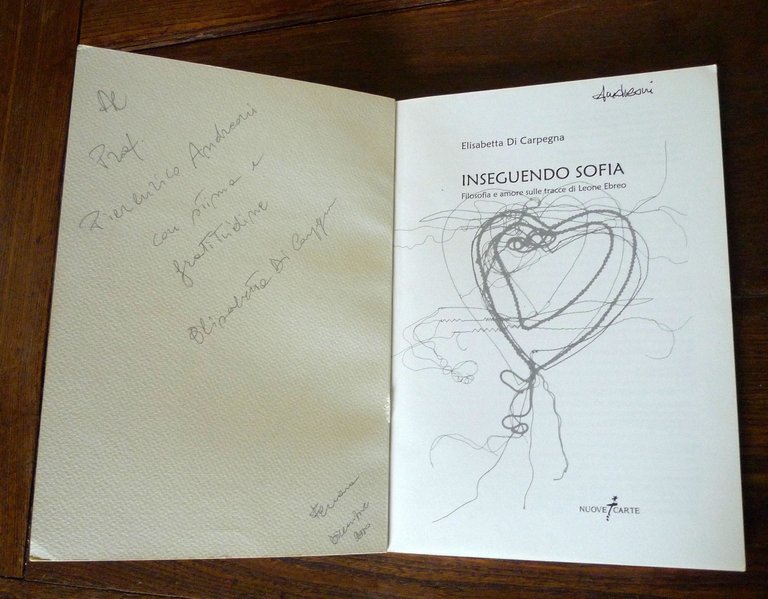 Al
Prof.
Pierenrico Andreoni
con stima e
gratitudine
Elisabetta Di Carpegna
Ferrara
dicembre
2010
Andreoni
Elisabetta Di Carpegna
INSEGUENDO SOFIA
Filosofia e amore sulle tracce di Leone Ebreo
NUOVE CARTE